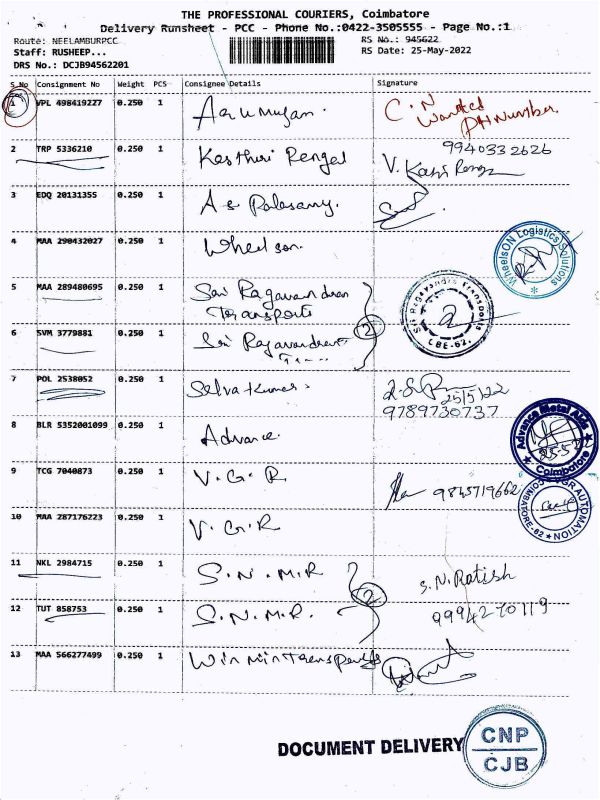 THE PROFESSIONAL COURIERS, Coimbatore
Delivery Runsheet - PCC - Phone No.:0422-3505555 - Page No.:1
Route: NEELAMBURPCC RS No.: 945622
Staff: RUSHEEP... RS Date: 25-May-2022
DRS No.: DCJB94562201
S.No Consignment No Weight PCS Consignee Details Signature
1 VPL 498419227 0.250 1 Aarumugam. C.N Wanted PH Number.
2 TRP 5336210 0.250 1 Kasthuri Rengal 9940332626
V. Kasi Renga
3 EDQ 20131355 0.250 1 A.S Palasamy.
4 MAA 290432027 0.250 1 Wheelson.
WheelsON Logistics Solutions
5 MAA 289480695 0.250 1 Sai Ragavandran
Transports
6 SVM 3779881 0.250 1 Sri Ragavandran
2
Sri Ragavendra Transports
CBE-62.
7 POL 2538052 0.250 1 Selvakumar. 25/5/22
9789730737
8 BLR 5352001099 0.250 1 Advance.
Advance Metal Aids
Coimbatore
9 TCG 7040873 0.250 1 V.G.R 9845719662
10 MAA 287176223 0.250 1 V.G.R
VGR AUTOMATION
COIMBATORE-62
11 NKL 2984715 0.250 1 S.N.M.R S.N. Ratish
12 TUT 858753 0.250 1 S.N.M.R. 2 9994270119
13 MAA 566277499 0.250 1 Win Win Transports
DOCUMENT DELIVERY
CNP
CJB